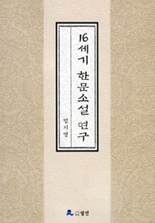 16세기 한문소설 연구
엄기영
월인